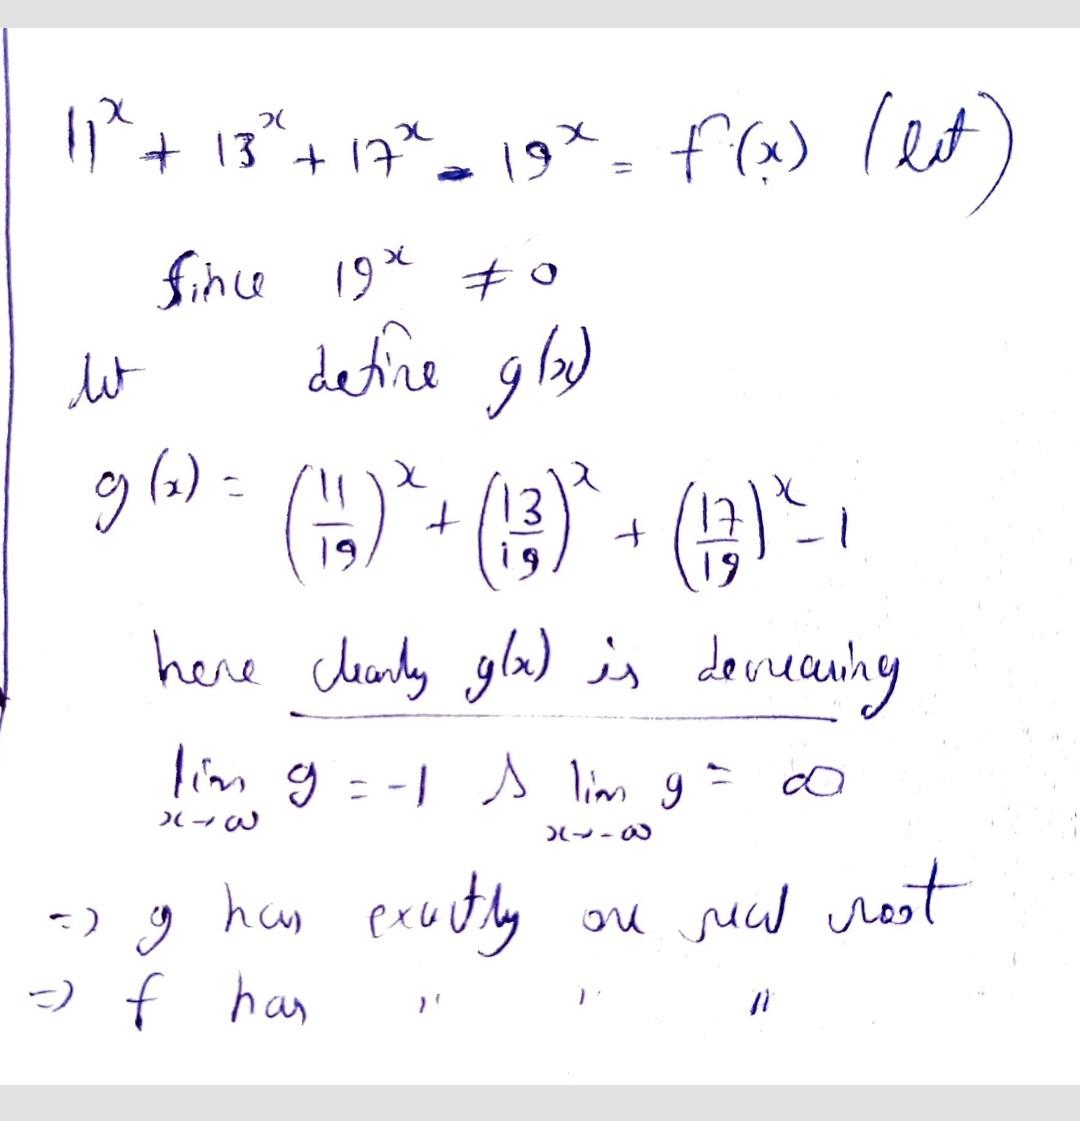 11ˣ + 13ˣ + 17ˣ - 19ˣ = f(x) (let)
Since 19ˣ ≠ 0
let define g(x)
g(x) = (11/19)ˣ + (13/19)ˣ + (17/19)ˣ - 1
here clearly g(x) is decreasing
lim x→∞ g = -1 & lim x→-∞ g = ∞
=> g has exactly one real root
=> f has " " "